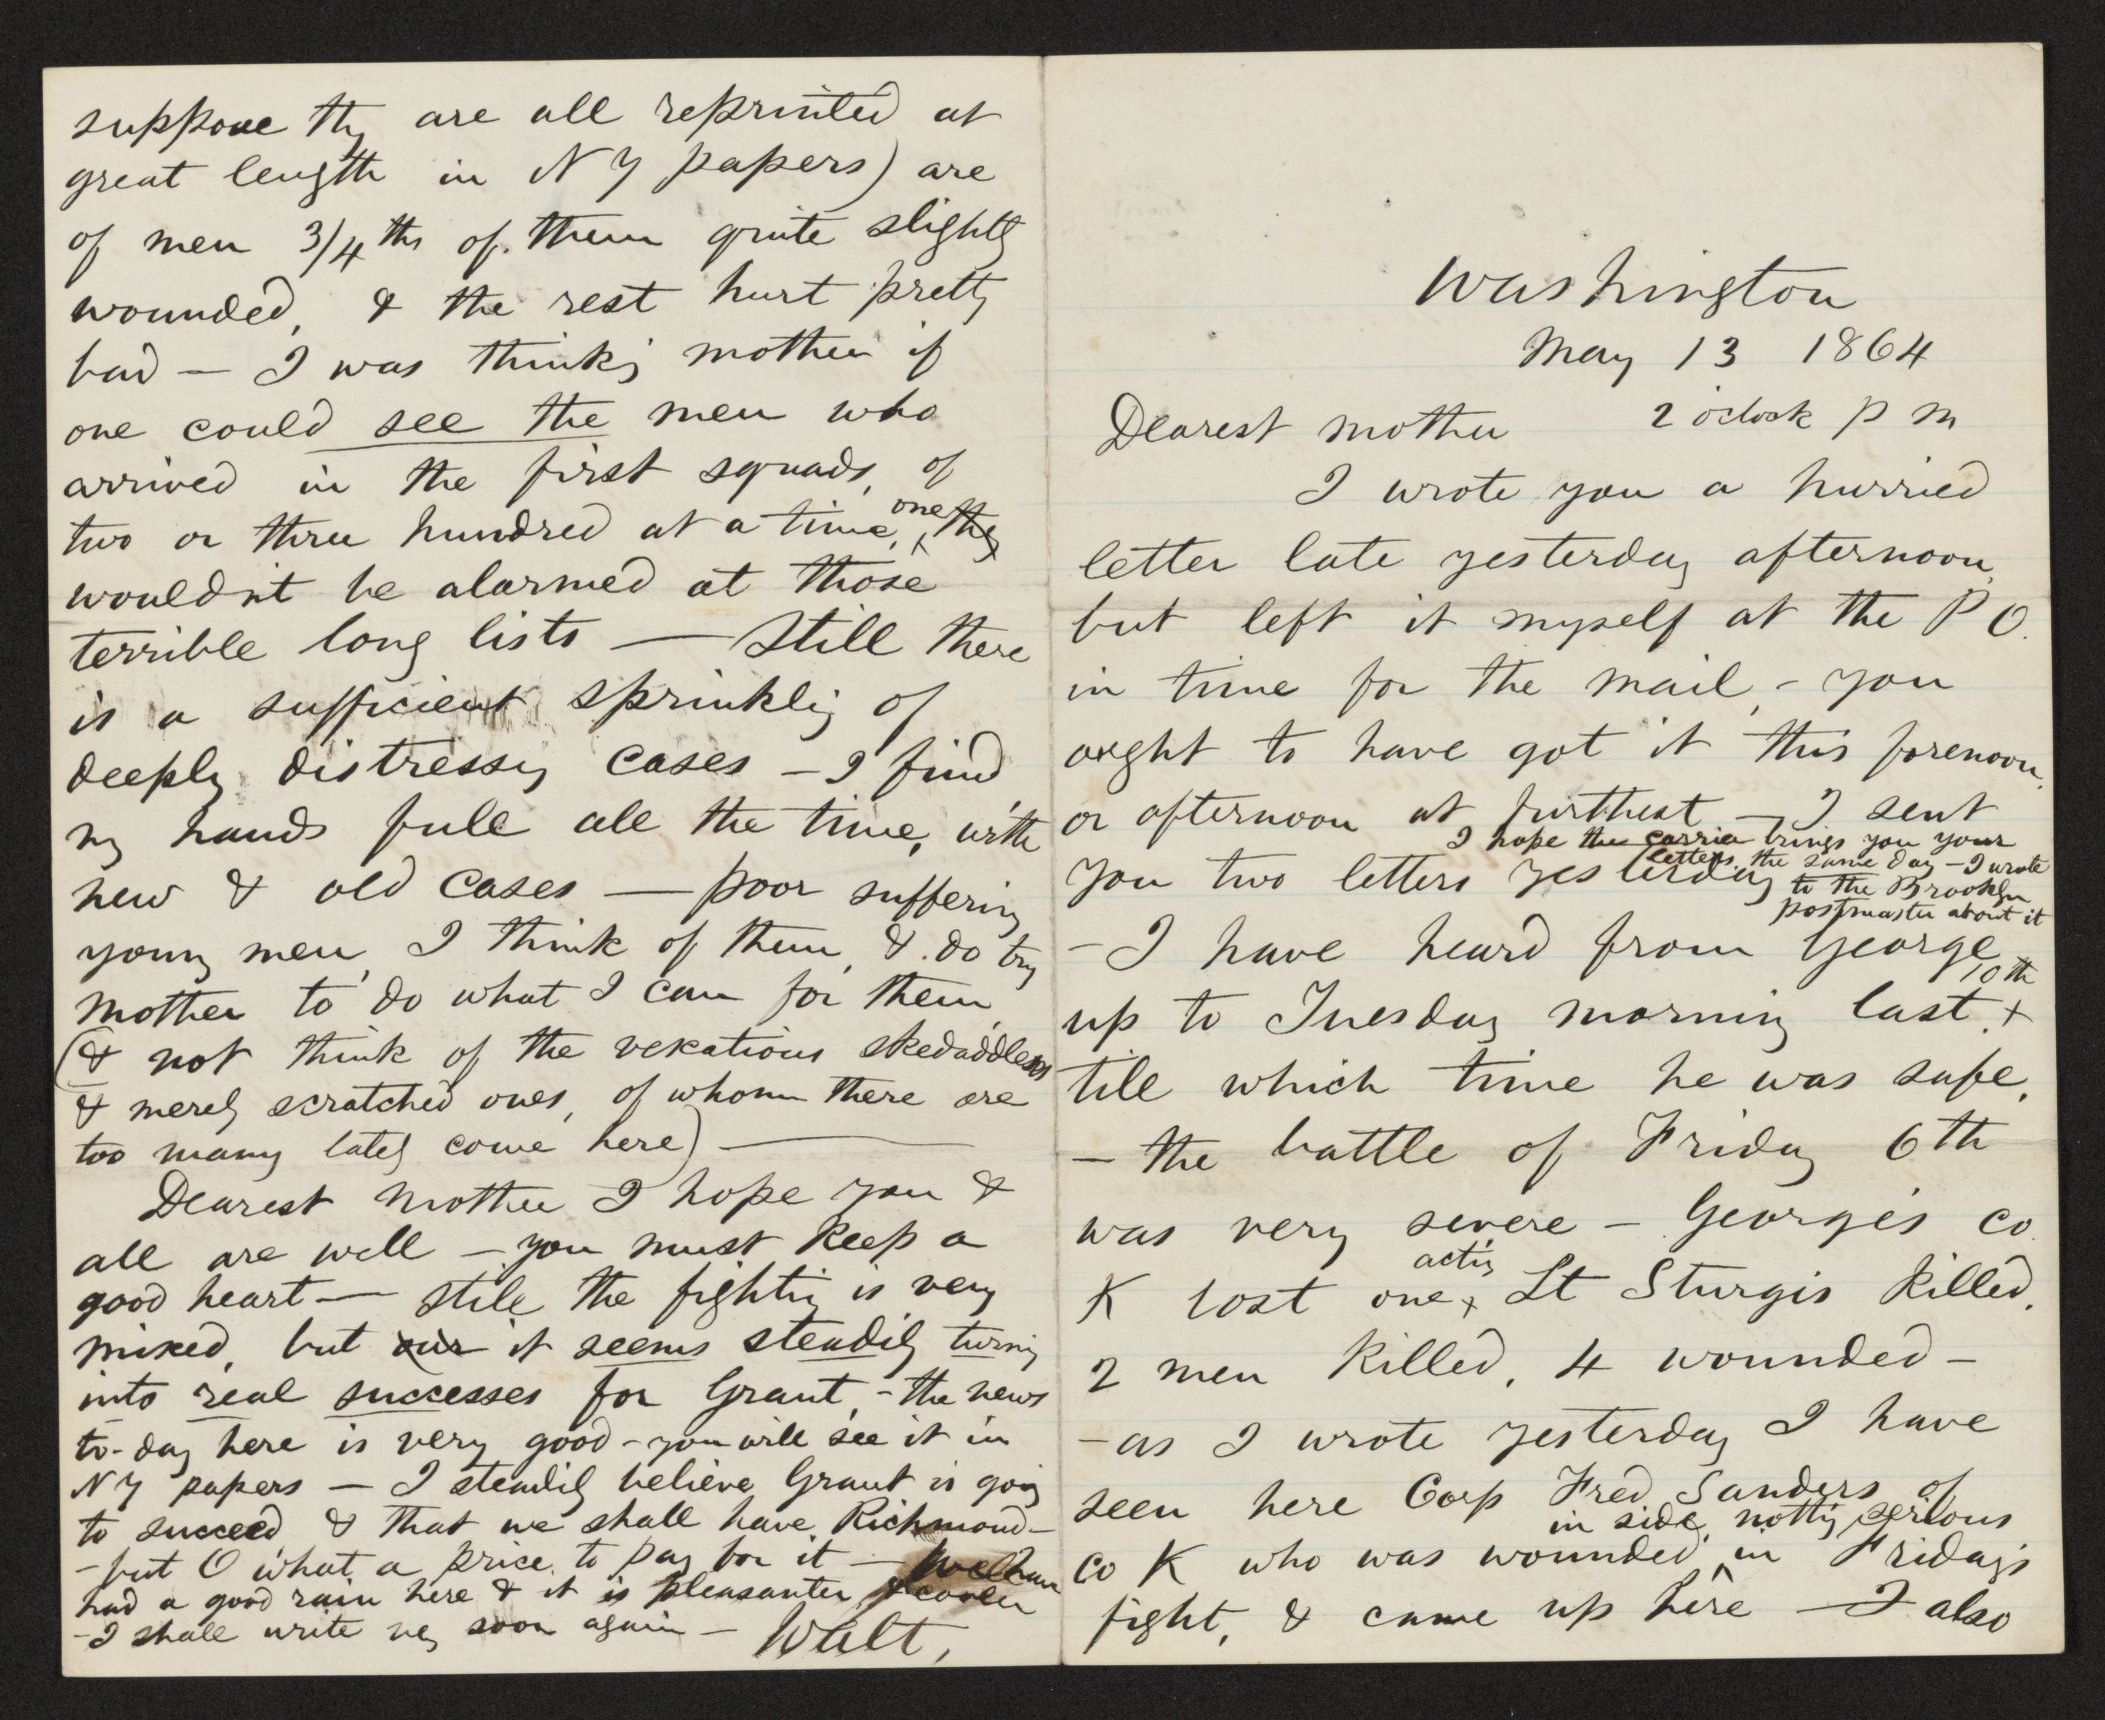 Washington
May 13 1864
Dearest mother 2 o'clock p m
I wrote you a hurried
letter late yesterday afternoon,
but left it myself at the P O.
in time for the mail, – you
ought to have got it this forenoon,
or afternoon at furthest – I sent
you two letters yesterday
I hope the carrier brings you your
letters the same day – I wrote
to the Brooklyn
postmaster about it
– I have heard from George
up to Tuesday morning last, 10th
till which time he was safe,
– the battle of Friday 6th
was very severe – George's Co.
K lost one acting Lt Sturgis killed,
2 men killed, 4 wounded –
– as I wrote yesterday I have
seen here Corp Fred Sanders of
Co K who was wounded in side, nothing serious in Friday's
fight, & came up here – I also
suppose they are all reprinted at
great length in N Y papers) are
of men 3/4ths of them quite slightly
wounded, & the rest hurt pretty
bad – I was thinking mother if
one could see the men who
arrived in the first squads, of
two or three hundred at a time, one they
wouldn't be alarmed at those
terrible long lists – Still there
is a sufficient sprinkling of
deeply distressing cases – I find
my hands full all the time, with
new & old cases – poor suffering
young men, I think of them, & do try
mother to do what I can for them,
(& not think of the vexatious skedaddlers
& merely scratched ones, of whom there are
too many lately come here) –
Dearest mother I hope you &
all are well – you must keep a
good heart – still the fighting is very
mixed, but our it seems steadily turning
into real successes for Grant, – the news
to-day here is very good – you will see it in
N Y papers – I steadily believe Grant is going
to succeed & that we shall have Richmond –
– but O what a price to pay for it – We have
had a good rain here & it is pleasanter & cooler
– I shall write very soon again – Walt,